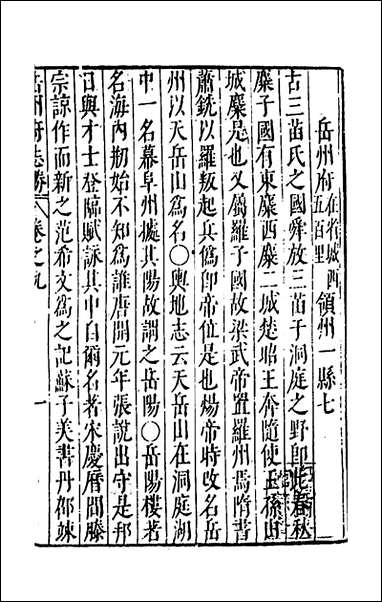 岳州府在省城西五百里領州一縣七
古三苗氏之國舜放三苗于洞庭之野即此春秋
麋子國有東麋西麋二城楚昭王奔隨使王孫由
城麋是也又屬羅子國故梁武帝置羅州焉隋書
蕭銑以羅叛起兵爲卽帝位是也煬帝時改名岳
州以天岳山爲名〇輿地志云天岳山在洞庭湖
中一名幕阜州據其陽故謂之岳陽〇岳陽樓著
名海内刱始不知爲誰唐開元年張說出守是邦
日與才士登臨賦詠其中自爾名著宋慶曆間滕
宗諒作而新之范希文爲之記蘇子美書丹邵竦
岳州府志勝 卷之九 一